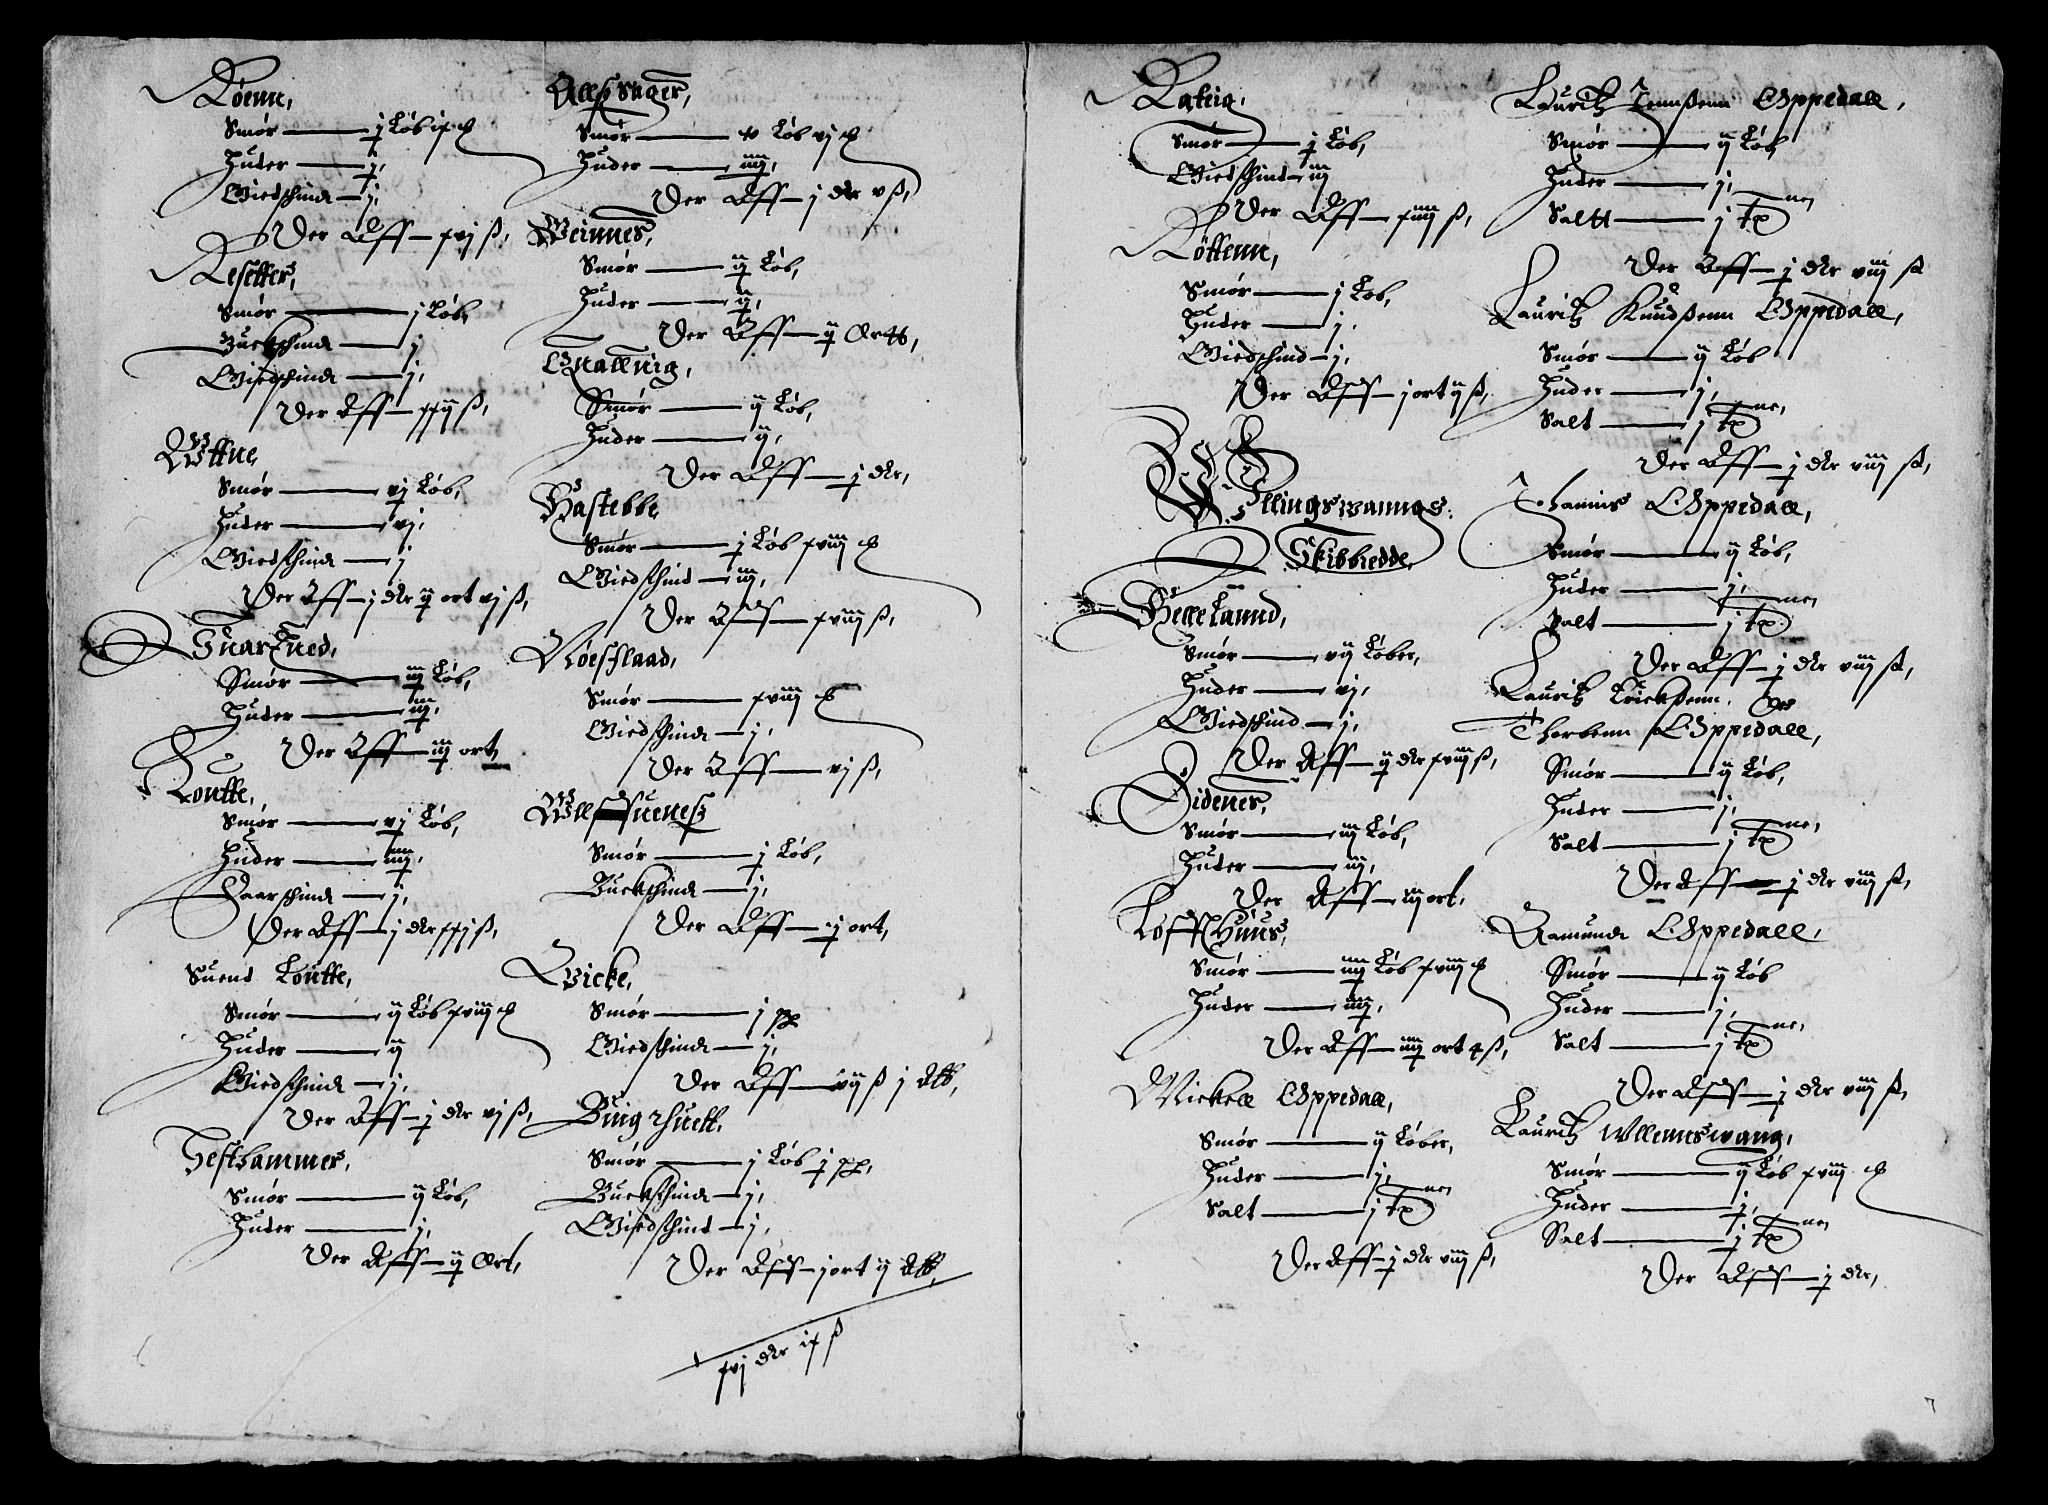 Röenn,
Smör — j Löb ix ℔
Huder — j,
Giedschind — j,
Der Aff — xvj ß,
Resetter,
Smör — j Löb,
Buckschind — j
Giedschind — j,
Der Aff — xxij ß,
Wttne
Smör — vj Löb,
Huder — vj,
Giedschind — j
Der Aff — j dlr ij ort vj ß,
Smör — iij Löb,
Huder — iij,
Der Aff — iij ort,
Loutte,
Smör — vj Löb,
Huder — iiij,
Faarschind — j,
Der Aff — j dlr xxj ß,
Suend Loutte,
Smör — ij Löb xviij ℔
Huder — ij
Giedschind — j,
Der Aff — j dlr vj ß,
Hesthammer,
Smör — ij Löb,
Huder — j,
Der Aff — ij Ort,
Allsager,
Smör — v Löb vj ℔
Huder — iiij,
Der Aff — j dlr v ß,
Weinnes,
Smör — ij Löb,
Huder — ij,
Der Aff — ij Ortt,
Quallnig,
Smör — ij Löb,
Huder — ij,
Der Aff — j dlr,
Hastebbe
Smör — j Löb xviij ℔
Giedschind — iij,
Der Aff — xviij ß,
Röesslaad,
Smör — xviij ℔
Giedschind — j,
Der Aff — vj ß,
Smör — j Löb,
Buckschind — j,
Der Aff — j ort,
Wicke,
Smör — j
Giedschind — j,
Der Aff — vij ß j Alb,
Smör — j Löb j
Buckschind — j,
Giedschind — j,
Der Aff — j ort ij Alb,
xvj dlr ix ß
Ratuig,
Smör — j Löb,
Giedschind — iij
Der Aff — xiiij ß,
Röttenn,
Smör — j Löb,
Huder — j,
Giedschind — j,
Der Aff — j ort ij ß,
Willingswanngs
Skibbredde
Helleland,
Smör — vij Löber,
Huder — vj,
Giedschind — j,
Der Aff — ij dlr xviij ß,
Sidenes,
Smör — iij Löb,
Huder — iij,
Der Aff — iij ort,
Loffthuus,
Smör — iiij Löb xviij ℔
Huder — iiij,
Der Aff — iiij ort 4 ß,
Mickell Oppedall,
Smör — ij Löber,
Huder — j,
Salt — j tøne
Der Aff — j dlr viij ß,
Lauritz Jennßenn Oppedall,
Smör — ij Löb
Huder — j,
Saltt — j tøne
Der Aff — j dlr viij ß
Lauritz Knudßenn Oppedall,
Smör — ij Löb
Huder — j,
Salt — j tøne,
Der Aff — j dlr viij ß,
Johannis Oppedall,
Smör — ij Löb,
Huder — j,
Salt — j tøne
Der Aff — j dlr viij ß,
Lauritz Erickßenn, Och
Thorbenn Oppedall,
Smör — ij Löb,
Huder — j,
Salt — j tøne,
Der Aff — j dlr viij ß,
Aamundt Oppedall,
Smör — ij Löb
Huder — j,
Salt — j tøne,
Der Aff — j dlr viij ß,
Lauritz Wllemswang,
Smör — ij Löb xviij ℔
Huder — j,
Salt — j tøne,
Der Aff — j dlr,
7